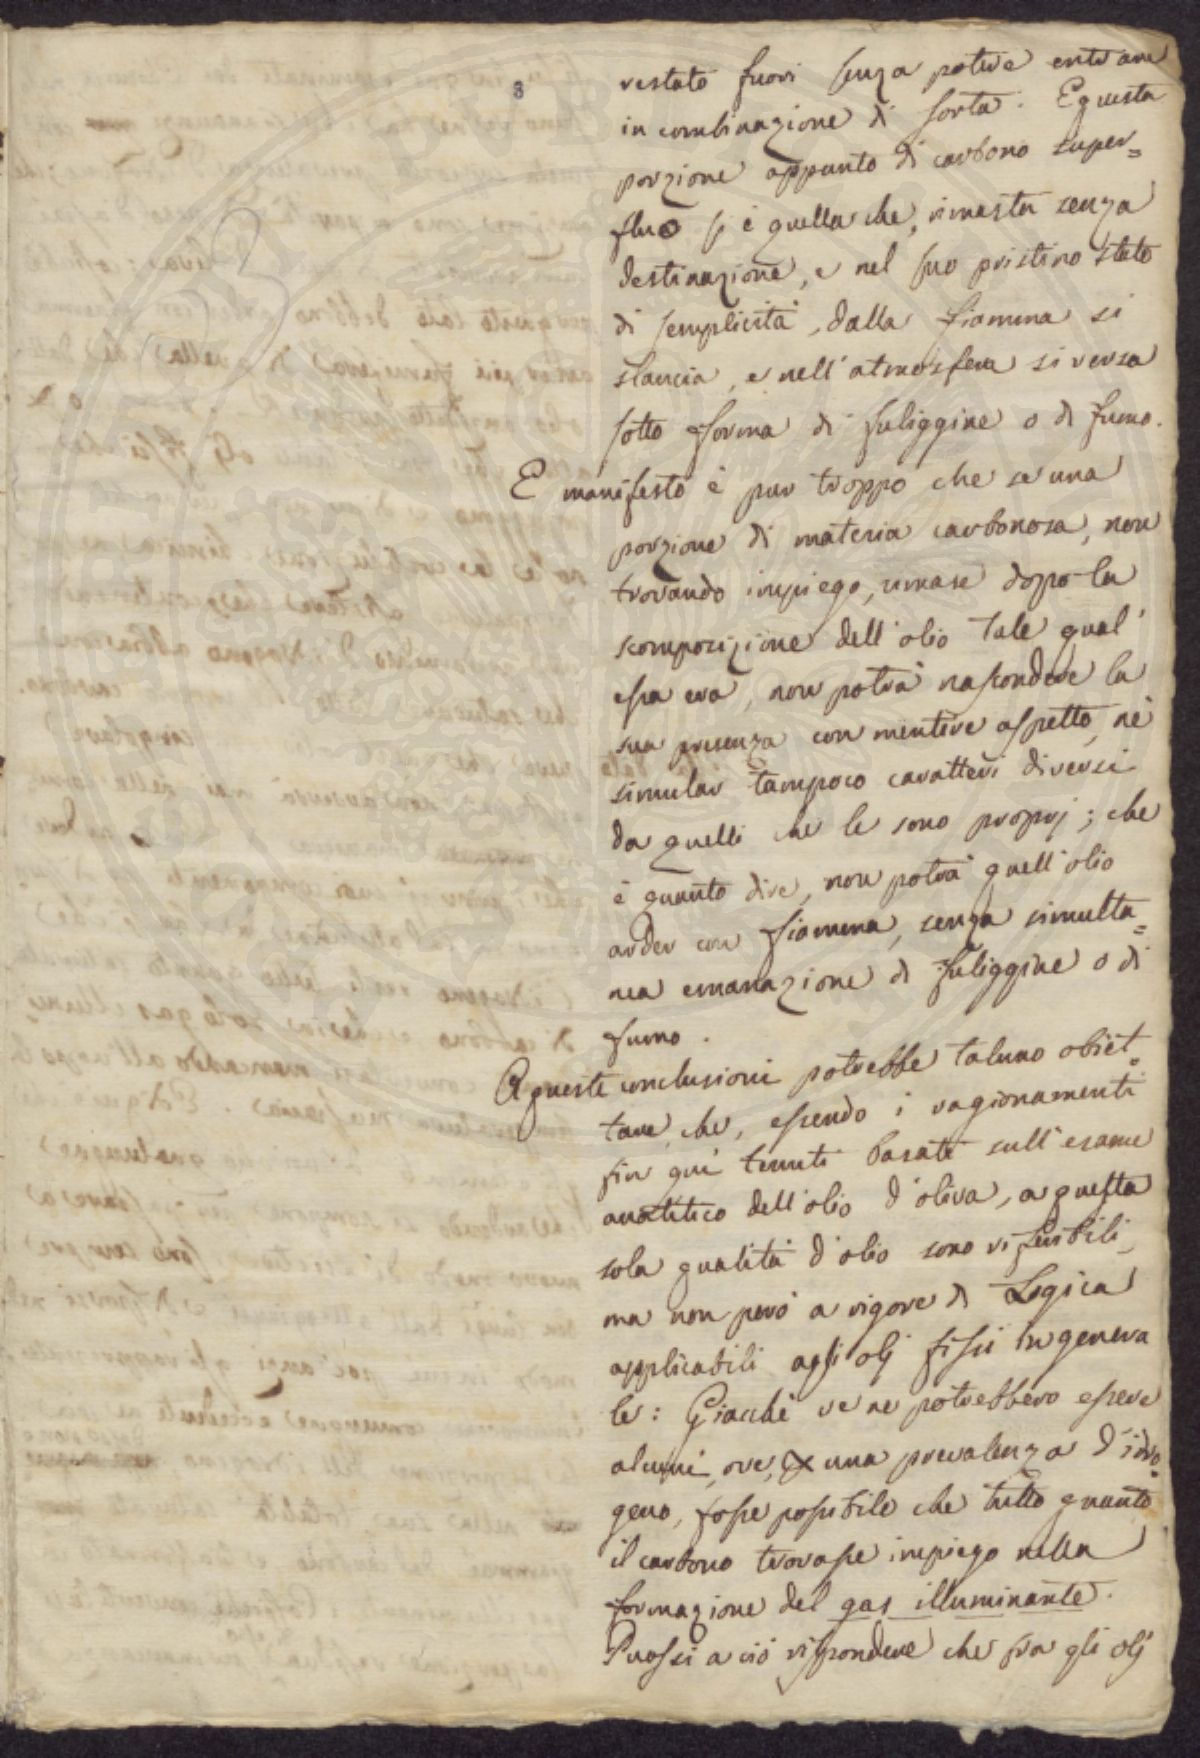 8
restato fuori senza potere entrare
in combinazione di sorta. E questa
porzione appunto di carbono super=
fluo si è quella che, rimasta senza
destinazione, e nel suo pristino stato
di semplicità, dalla fiamma si
slancia, e nell'atmosfera si versa
sotto forma di fuliggine o di fumo.
E manifesto è pur troppo che se una
porzione di materia carbonosa, non
trovando impiego, rimase dopo la
scomposizione dell'olio tale qual'
essa era, non potrà nascondere la
sua presenza con mentire aspetto, nè
simular tampoco caratteri diversi
da quelli che le sono proprj; che
è quanto dire, non potrà quell'olio
arder con fiamma, senza simulta=
nea emanazione di fuliggine o di
fumo.
A queste conclusioni potrebbe taluno obiet=
tare che, essendo i ragionamenti
fin quì tenuti basati sull'esame
analitico dell'olio d'oliva, a questa
sola qualità d'olio sono risensibili,
ma non però a rigore di Logica
applicabili agli olj fissi in genera
le: Giacchè ve ne potrebbero essere
alcuni, ove, una prevalenza d'idro=
geno, fosse possibile che tutto quanto
il carbono trovasse impiego nella
formazione del gas illuminante.
Puossi a ciò rispondere che fra gli olj